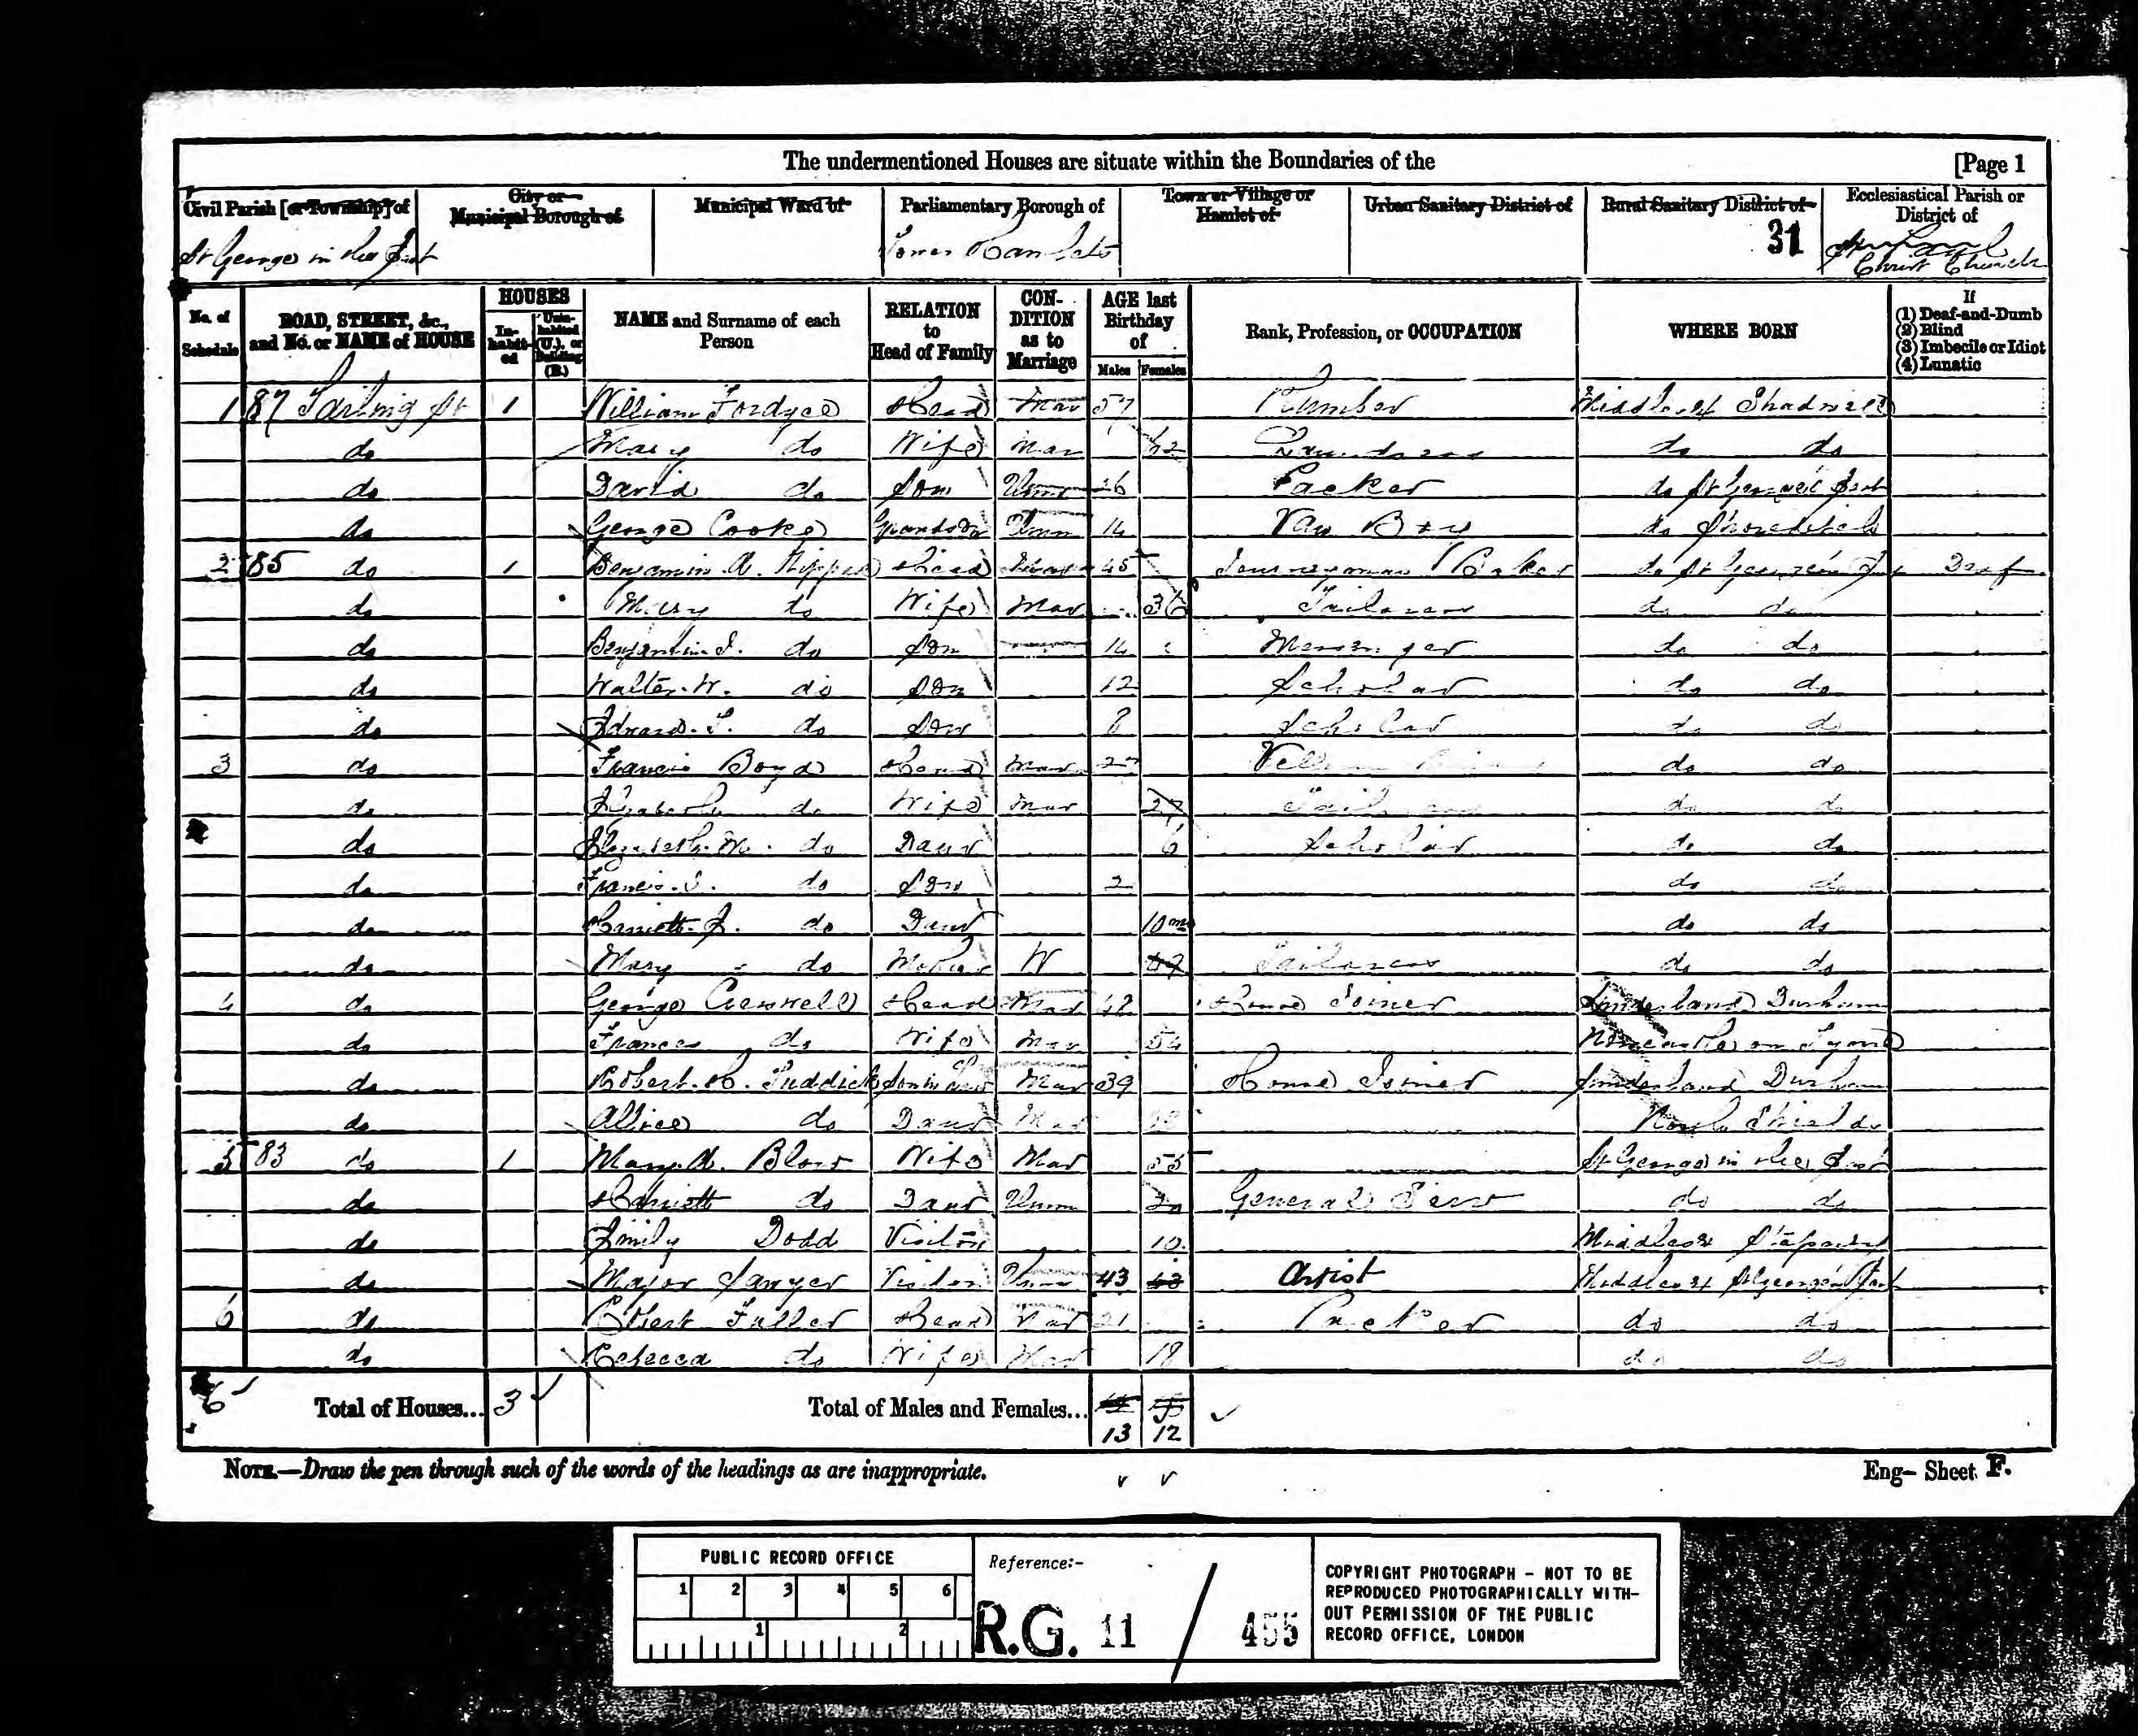 The undermentioned Houses are situate within the Boundaries of the [Page 1
Civil Parish [or Township] of
City or Municipal Borough of
Municipal Ward of
Parliamentary Borough of
Town or Village or Hamlet of
Urban Sanitary District of
Rural Sanitary District of
Ecclesiastical Parish or District of
St George in the East
Tower Hamlets
31
Christ Church
No. of Schedule
ROAD, STREET, &c., and No. or NAME of HOUSE
HOUSES
In-habit-ed
Unin-habited (U.), or Building (B.)
NAME and Surname of each Person
RELATION to Head of Family
CON-DITION as to Marriage
AGE last Birthday of
Males Females
Rank, Profession, or OCCUPATION
WHERE BORN
If
(1) Deaf-and-Dumb
(2) Blind
(3) Imbecile or Idiot
(4) Lunatic
1 87 St 1 William Fordyce Head Mar 57 Plumber Middlesex Shadwell
do Mary do Wife Mar Laundress do do
do David do Son Unm 26 Packer do St George's East
do George Cooke Grandson Unm 14 Van Boy do Shoreditch
2 85 do 1 Benjamin A. Head Mar 45 Journeyman Baker do St George's Deaf
do Mary do Wife Mar 36 Tailoress do do
do Benjamin J. do Son 14 Messenger do do
do Walter W. do Son 12 Scholar do do
do Edward do Son 8 Scholar do do
3 do Francis Boyd Head Mar do do
do Elizabeth do Wife Mar 27 do do
do Elizabeth M. do Daur 6 Scholar do do
do Francis J. do Son 2 do do
do Harriett do Daur 10 mo do do
do Mary do Mother W 49 Tailoress do do
4 do George Creswell Head Mar House Joiner Sunderland Durham
do Frances do Wife Mar 54 Newcastle on Tyne
do Robert H. Tuddick Son in law Mar 39 House Joiner Sunderland Durham
do Alice do Daur Mar North Shields
5 83 do 1 Mary A. Blow Wife Mar 55 St George in the East
do Harriett do Daur Unm 20 General Serv do do
do Emily Dodd Visitor 10 Middlesex
do Major Sawyer Visitor Unm 43 43 Artist Middlesex St George's East
6 do Robert Fuller Head Mar 21 Packer do do
do Rebecca do Wife Mar 18 do do
6 Total of Houses... 3 Total of Males and Females...
13 12
NOTE.—Draw the pen through such of the words of the headings as are inappropriate. Eng— Sheet F.
PUBLIC RECORD OFFICE
1 2 3 4 5 6
1 2
Reference:-
R.G. 11 / 455
COPYRIGHT PHOTOGRAPH - NOT TO BE
REPRODUCED PHOTOGRAPHICALLY WITH-
OUT PERMISSION OF THE PUBLIC
RECORD OFFICE, LONDON